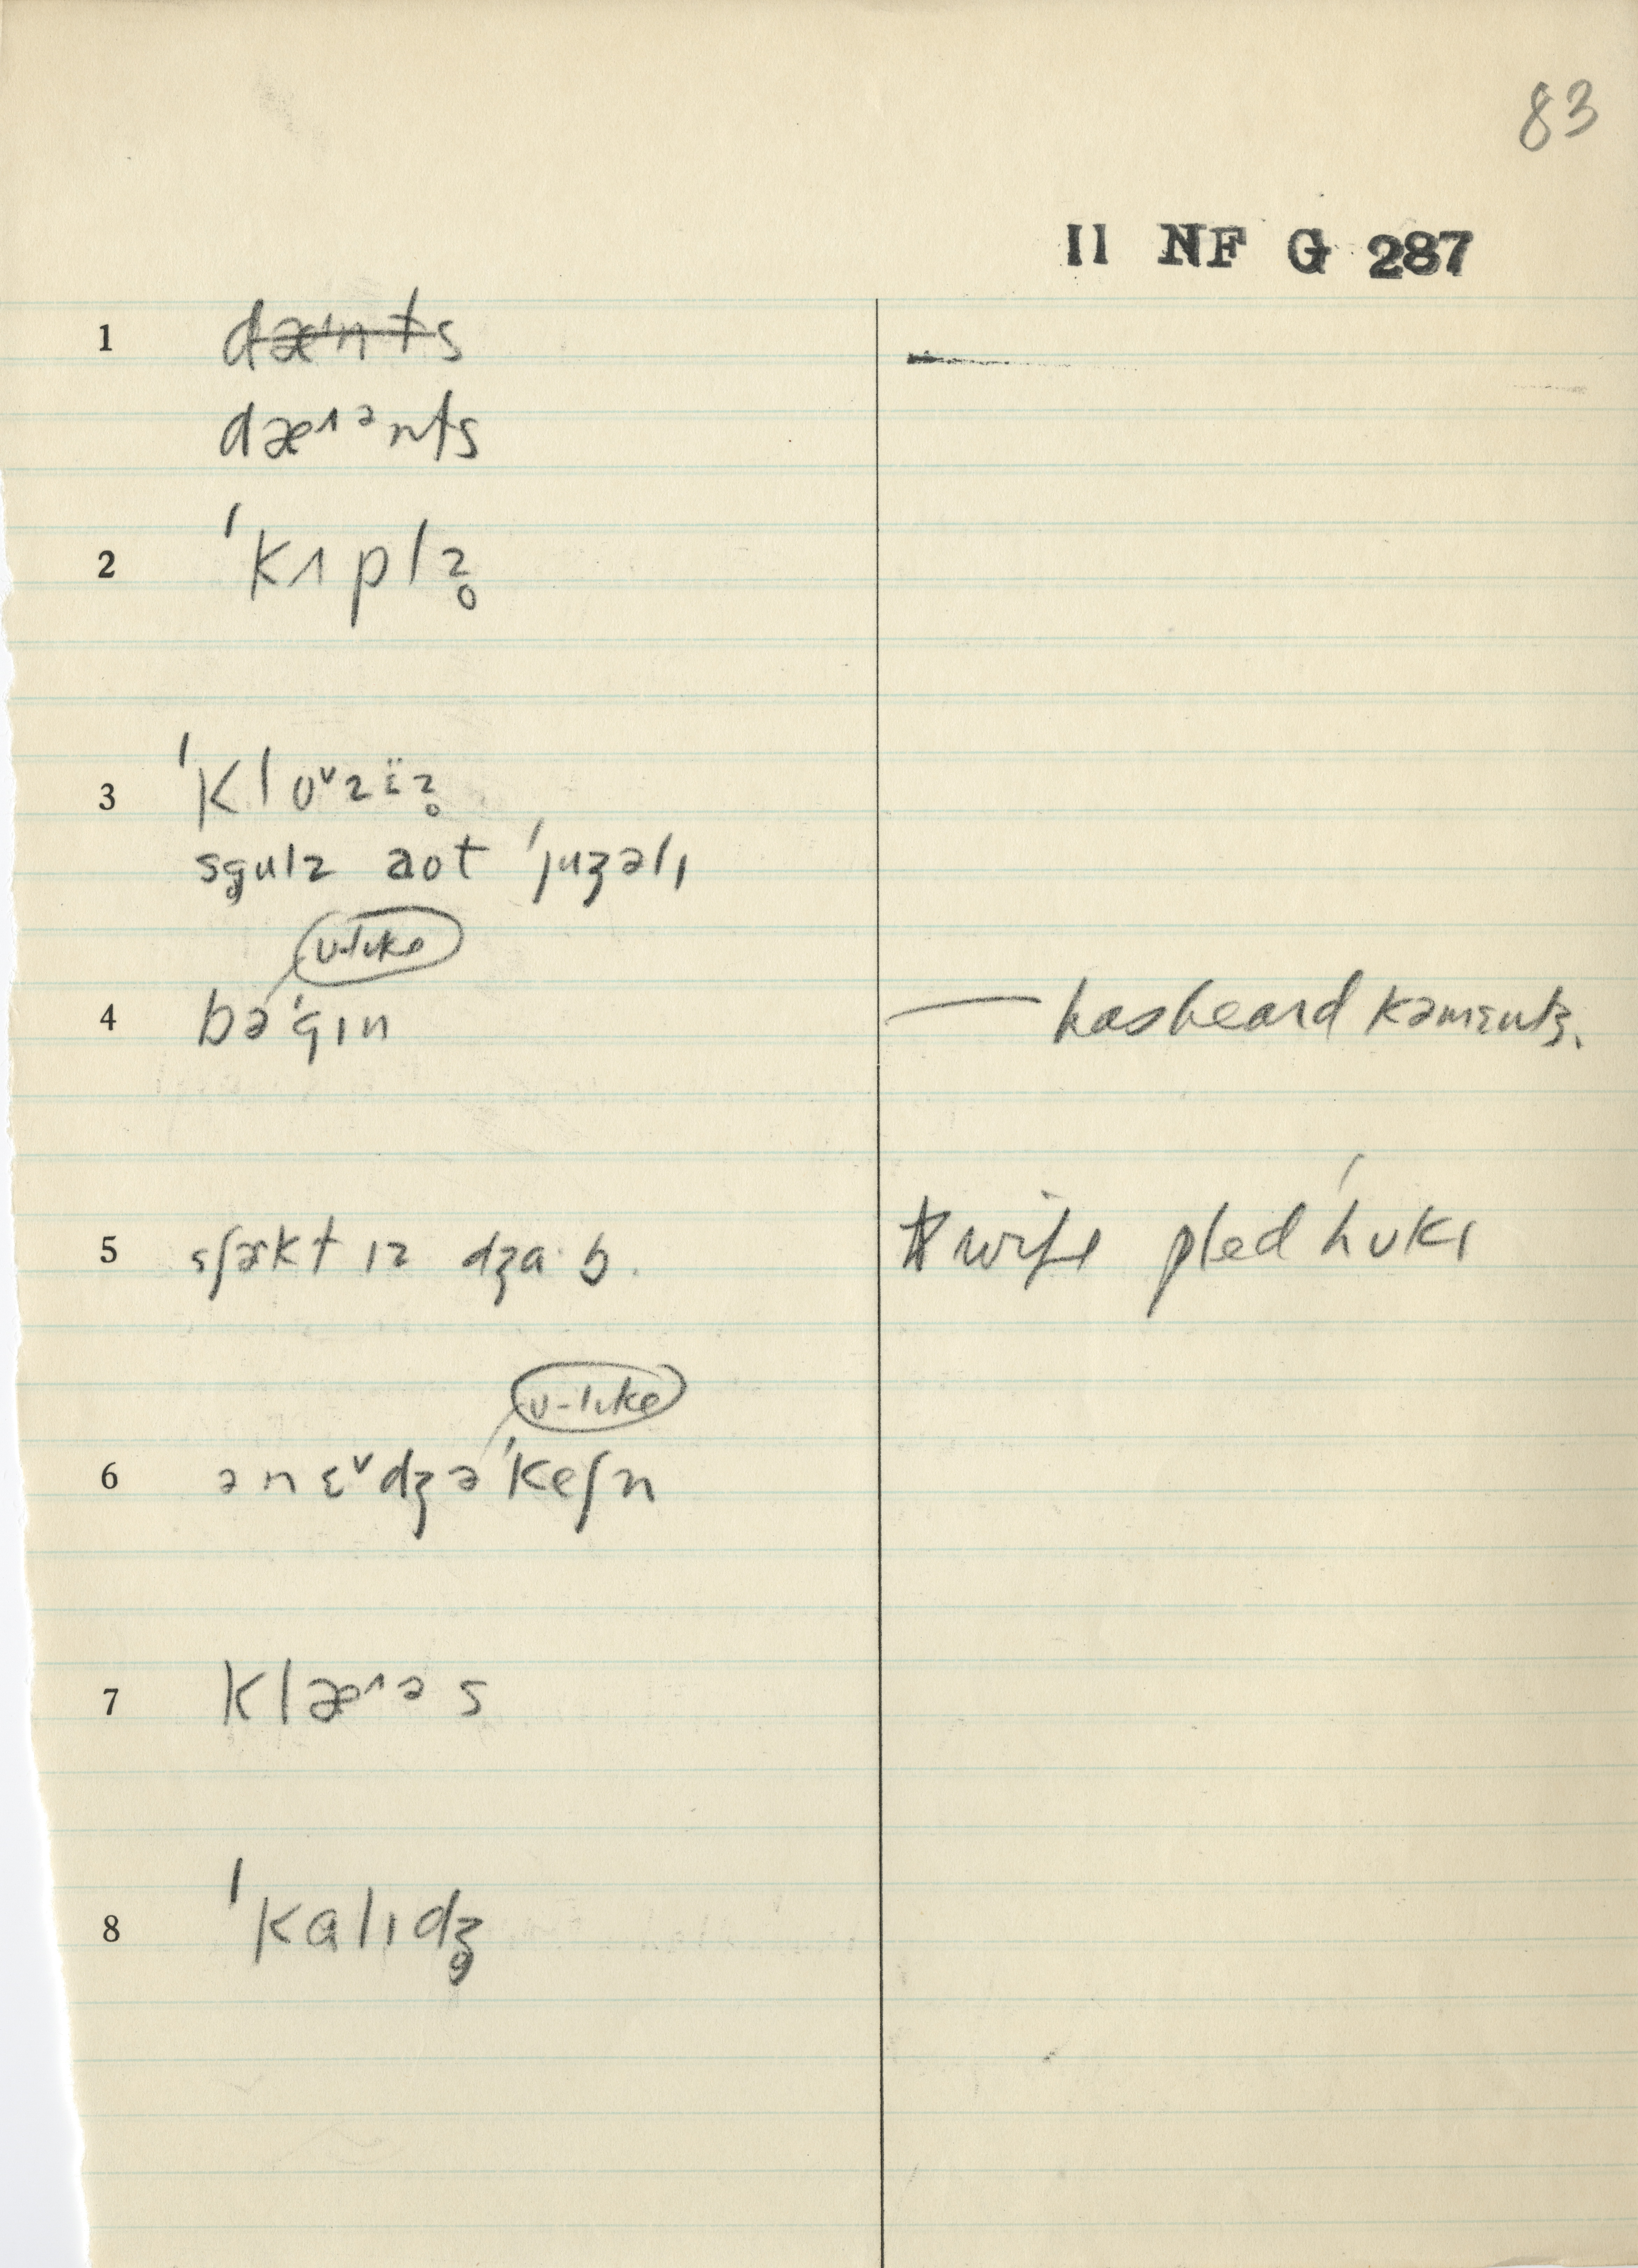 83
II NF G 287
1 ~~dæ˄nts~~
dæ˄ᵊnts
2 ˈkɪplz̥
3 ˈkloᵛzɛ̈z̥
sgulz aot ˈjuʒəlɪ
ʊ-like
4 bəˈgɪn — has heard kəmɛnts.
5 sʃækt ɪz dʒɑ·b. wife pled ˈhʊkɪ
ʊ-like
6 ənɛᵛdʒəˈkeʃn
7 klæ˄ᵊs
8 ˈkalɪdʒ̥